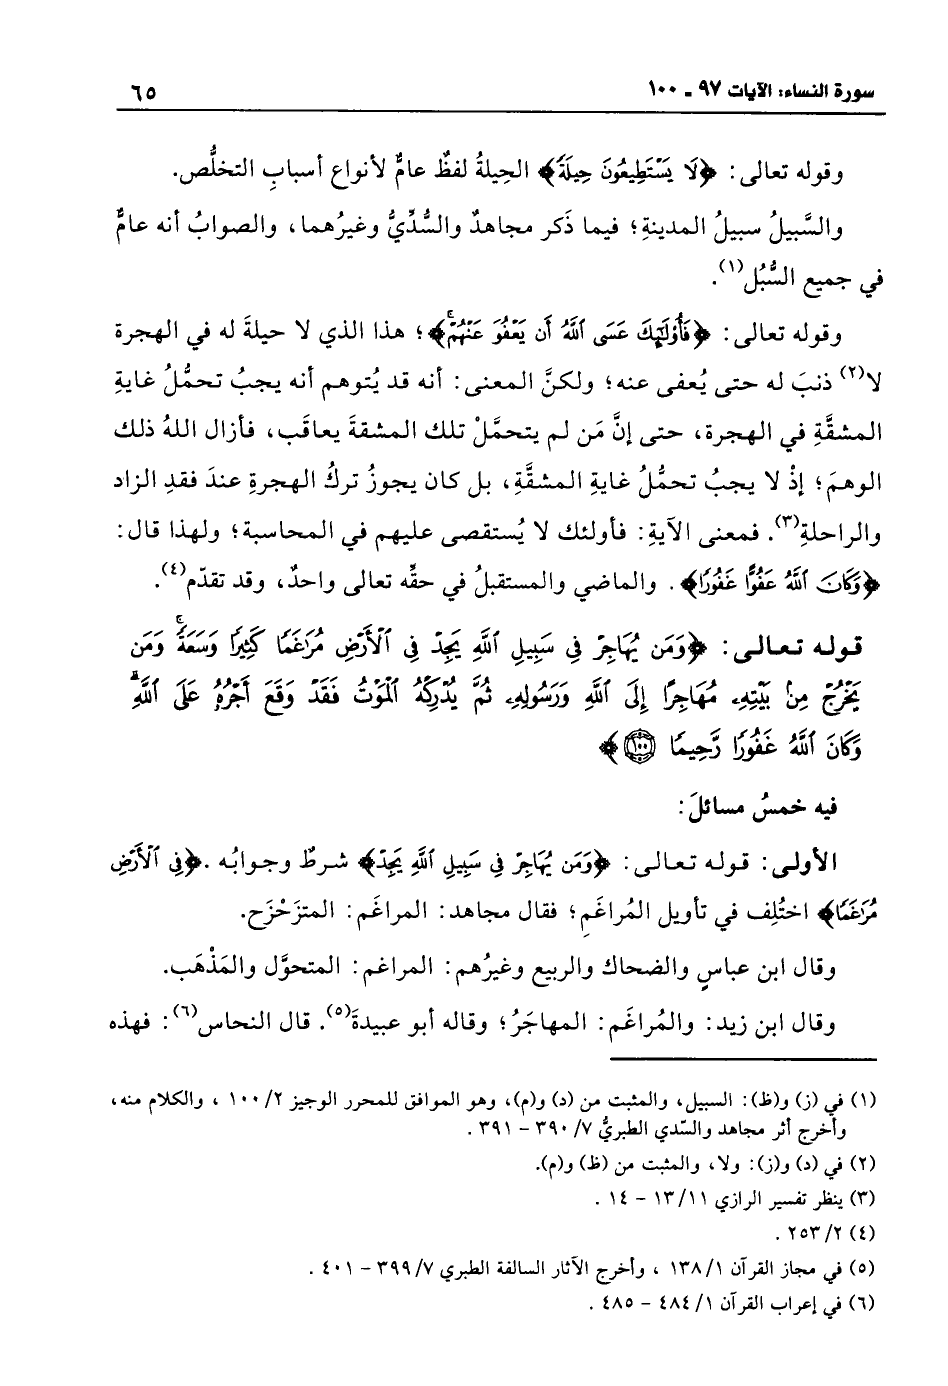 سورة النساء: الآيات ٩٧ - ١٠٠
٦٥
وقوله تعالى: ﴿لَا يَسْتَطِيعُونَ حِيلَةً﴾ الحِيلةُ لفظٌ عامٌّ لأنواع أسبابِ التخلُّص.
والسَّبيلُ سبيلُ المدينةِ؛ فيما ذَكر مجاهدٌ والسُّدِّيُّ وغيرُهما، والصوابُ أنه عامٌّ
في جميع السُّبُل(١).
وقوله تعالى: ﴿فَأُوْلَٰٓئِكَ عَسَى ٱللَّهُ أَن يَعْفُوَ عَنْهُمْۚ﴾؛ هذا الذي لا حيلةَ له في الهجرة
لا(٢) ذنبَ له حتى يُعفى عنه؛ ولكنَّ المعنى: أنه قد يُتوهم أنه يجبُ تحمُّلُ غايةِ
المشقَّةِ في الهجرة، حتى إنَّ مَن لم يتحمَّلْ تلك المشقةَ يعاقَب، فأزال اللهُ ذلك
الوهمَ؛ إذْ لا يجبُ تحمُّلُ غايةِ المشقَّةِ، بل كان يجوزُ تركُ الهجرةِ عندَ فقدِ الزاد
والراحلةِ(٣). فمعنى الآيةِ: فأولئك لا يُستقصى عليهم في المحاسبة؛ ولهذا قال:
﴿وَكَانَ ٱللَّهُ عَفُوًّا غَفُورًا﴾. والماضي والمستقبلُ في حقِّه تعالى واحدٌ، وقد تقدّم(٤).
قوله تعالى: ﴿وَمَن يُهَاجِرْ فِي سَبِيلِ ٱللَّهِ يَجِدْ فِي ٱلْأَرْضِ مُرَٰغَمًا كَثِيرًا وَسَعَةًۚ وَمَن
يَخْرُجْ مِنۢ بَيْتِهِۦ مُهَاجِرًا إِلَى ٱللَّهِ وَرَسُولِهِۦ ثُمَّ يُدْرِكْهُ ٱلْمَوْتُ فَقَدْ وَقَعَ أَجْرُهُۥ عَلَى ٱللَّهِۗ
وَكَانَ ٱللَّهُ غَفُورًا رَّحِيمًا ١٠٠﴾
فيه خمسُ مسائلَ:
الأولى: قوله تعالى: ﴿وَمَن يُهَاجِرْ فِي سَبِيلِ ٱللَّهِ يَجِدْ﴾ شرطٌ وجوابُه. ﴿فِي ٱلْأَرْضِ
مُرَٰغَمًا﴾ اختُلِف في تأويل المُراغَمِ؛ فقال مجاهد: المراغَم: المتزَحْزَح.
وقال ابن عباسٍ والضحاك والربيع وغيرُهم: المراغم: المتحوَّل والمَذْهَب.
وقال ابن زيد: والمُراغَم: المهاجَرُ؛ وقاله أبو عبيدةَ(٥). قال النحاس(٦): فهذه
(١) في (ز) و(ظ): السبيل، والمثبت من (د) و(م)، وهو الموافق للمحرر الوجيز ٢/ ١٠٠ ، والكلام منه،
وأخرج أثر مجاهد والسّدي الطبريُّ ٧/ ٣٩٠ - ٣٩١ .
(٢) في (د) و(ز): ولا، والمثبت من (ظ) و(م).
(٣) ينظر تفسير الرازي ١١/ ١٣ - ١٤ .
(٤) ٢/ ٢٥٣ .
(٥) في مجاز القرآن ١/ ١٣٨ ، وأخرج الآثار السالفة الطبري ٧/ ٣٩٩ - ٤٠١ .
(٦) في إعراب القرآن ١/ ٤٨٤ - ٤٨٥ .